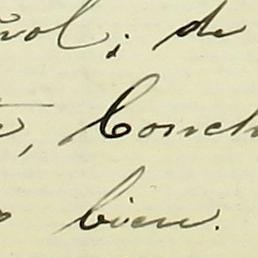 ñol; de
, Conch
bien.